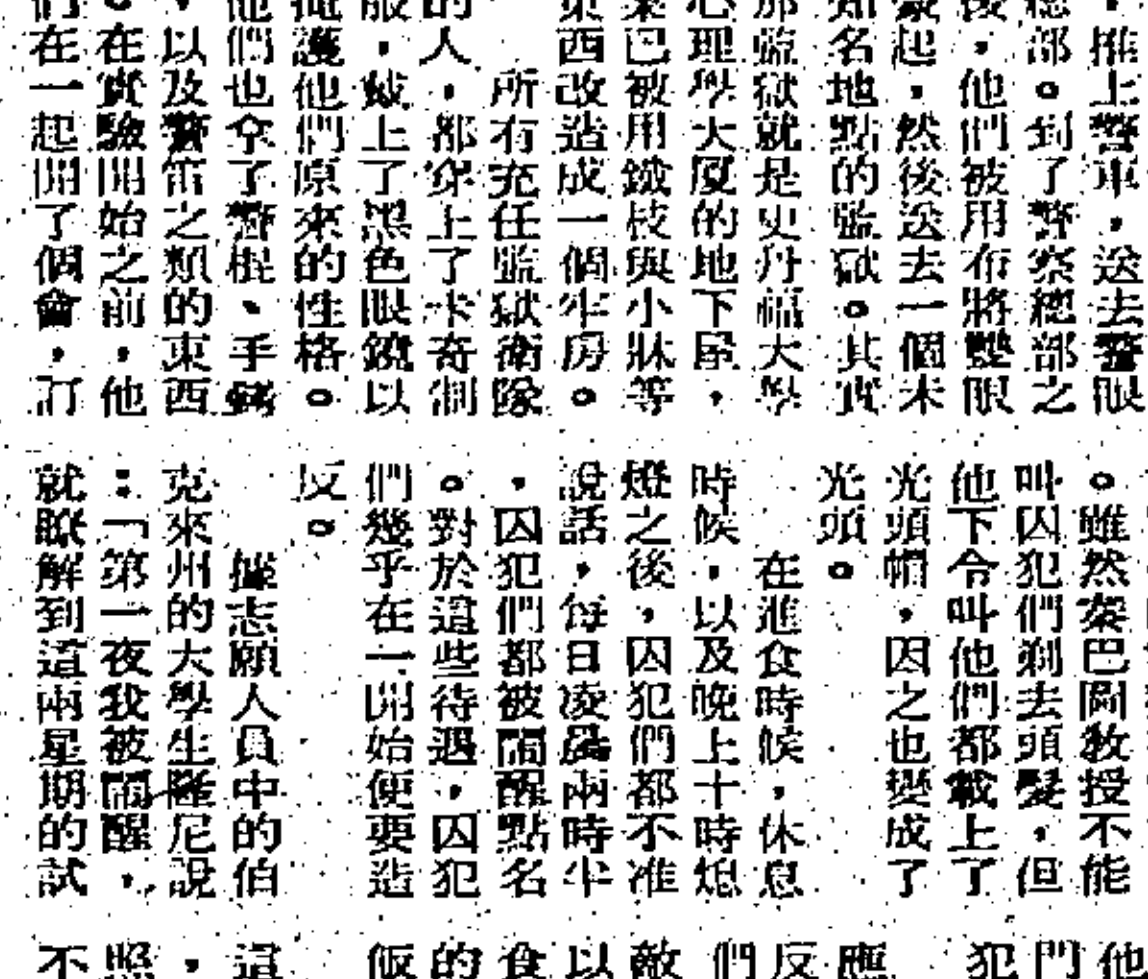 ，推上警車，送去警
總部。到了警察總部之
後，他們被用布將雙眼
蒙起，然後送去一個未
知名地點的監獄。其實
那監獄就是史丹福大學
心理學大廈的地下屋，
業已被用鐵枝與小牀等
東西改造成一個牢房。
所有充任監獄衛隊
的人，都穿上了卡奇制
服，戴上了黑色眼鏡以
掩護他們原來的性格。
他們也拿了警棍、手銬
，以及警笛之類的東西
。在實驗開始之前，他
們在一起開了個會，訂
。雖然巴教授不能
叫囚犯們剃去頭髮，但
他下令叫他們都戴上了
光頭帽，因之也變成了
光頭。
在進食時候，休息
時候，以及晚上十時熄
燈之後，囚犯們都不准
說話，每日凌晨兩時半
，囚犯們都被鬧醒點名
。對於這些待遇，囚犯
們幾乎在一開始便要造
反。
據志願人員中的伯
克來州的大學生隆尼說
：「第一夜我被鬧醒，
就瞭解到這兩星期的試
他
犯
應
反
們
敵
以
食
的
飯
這
，
照
不